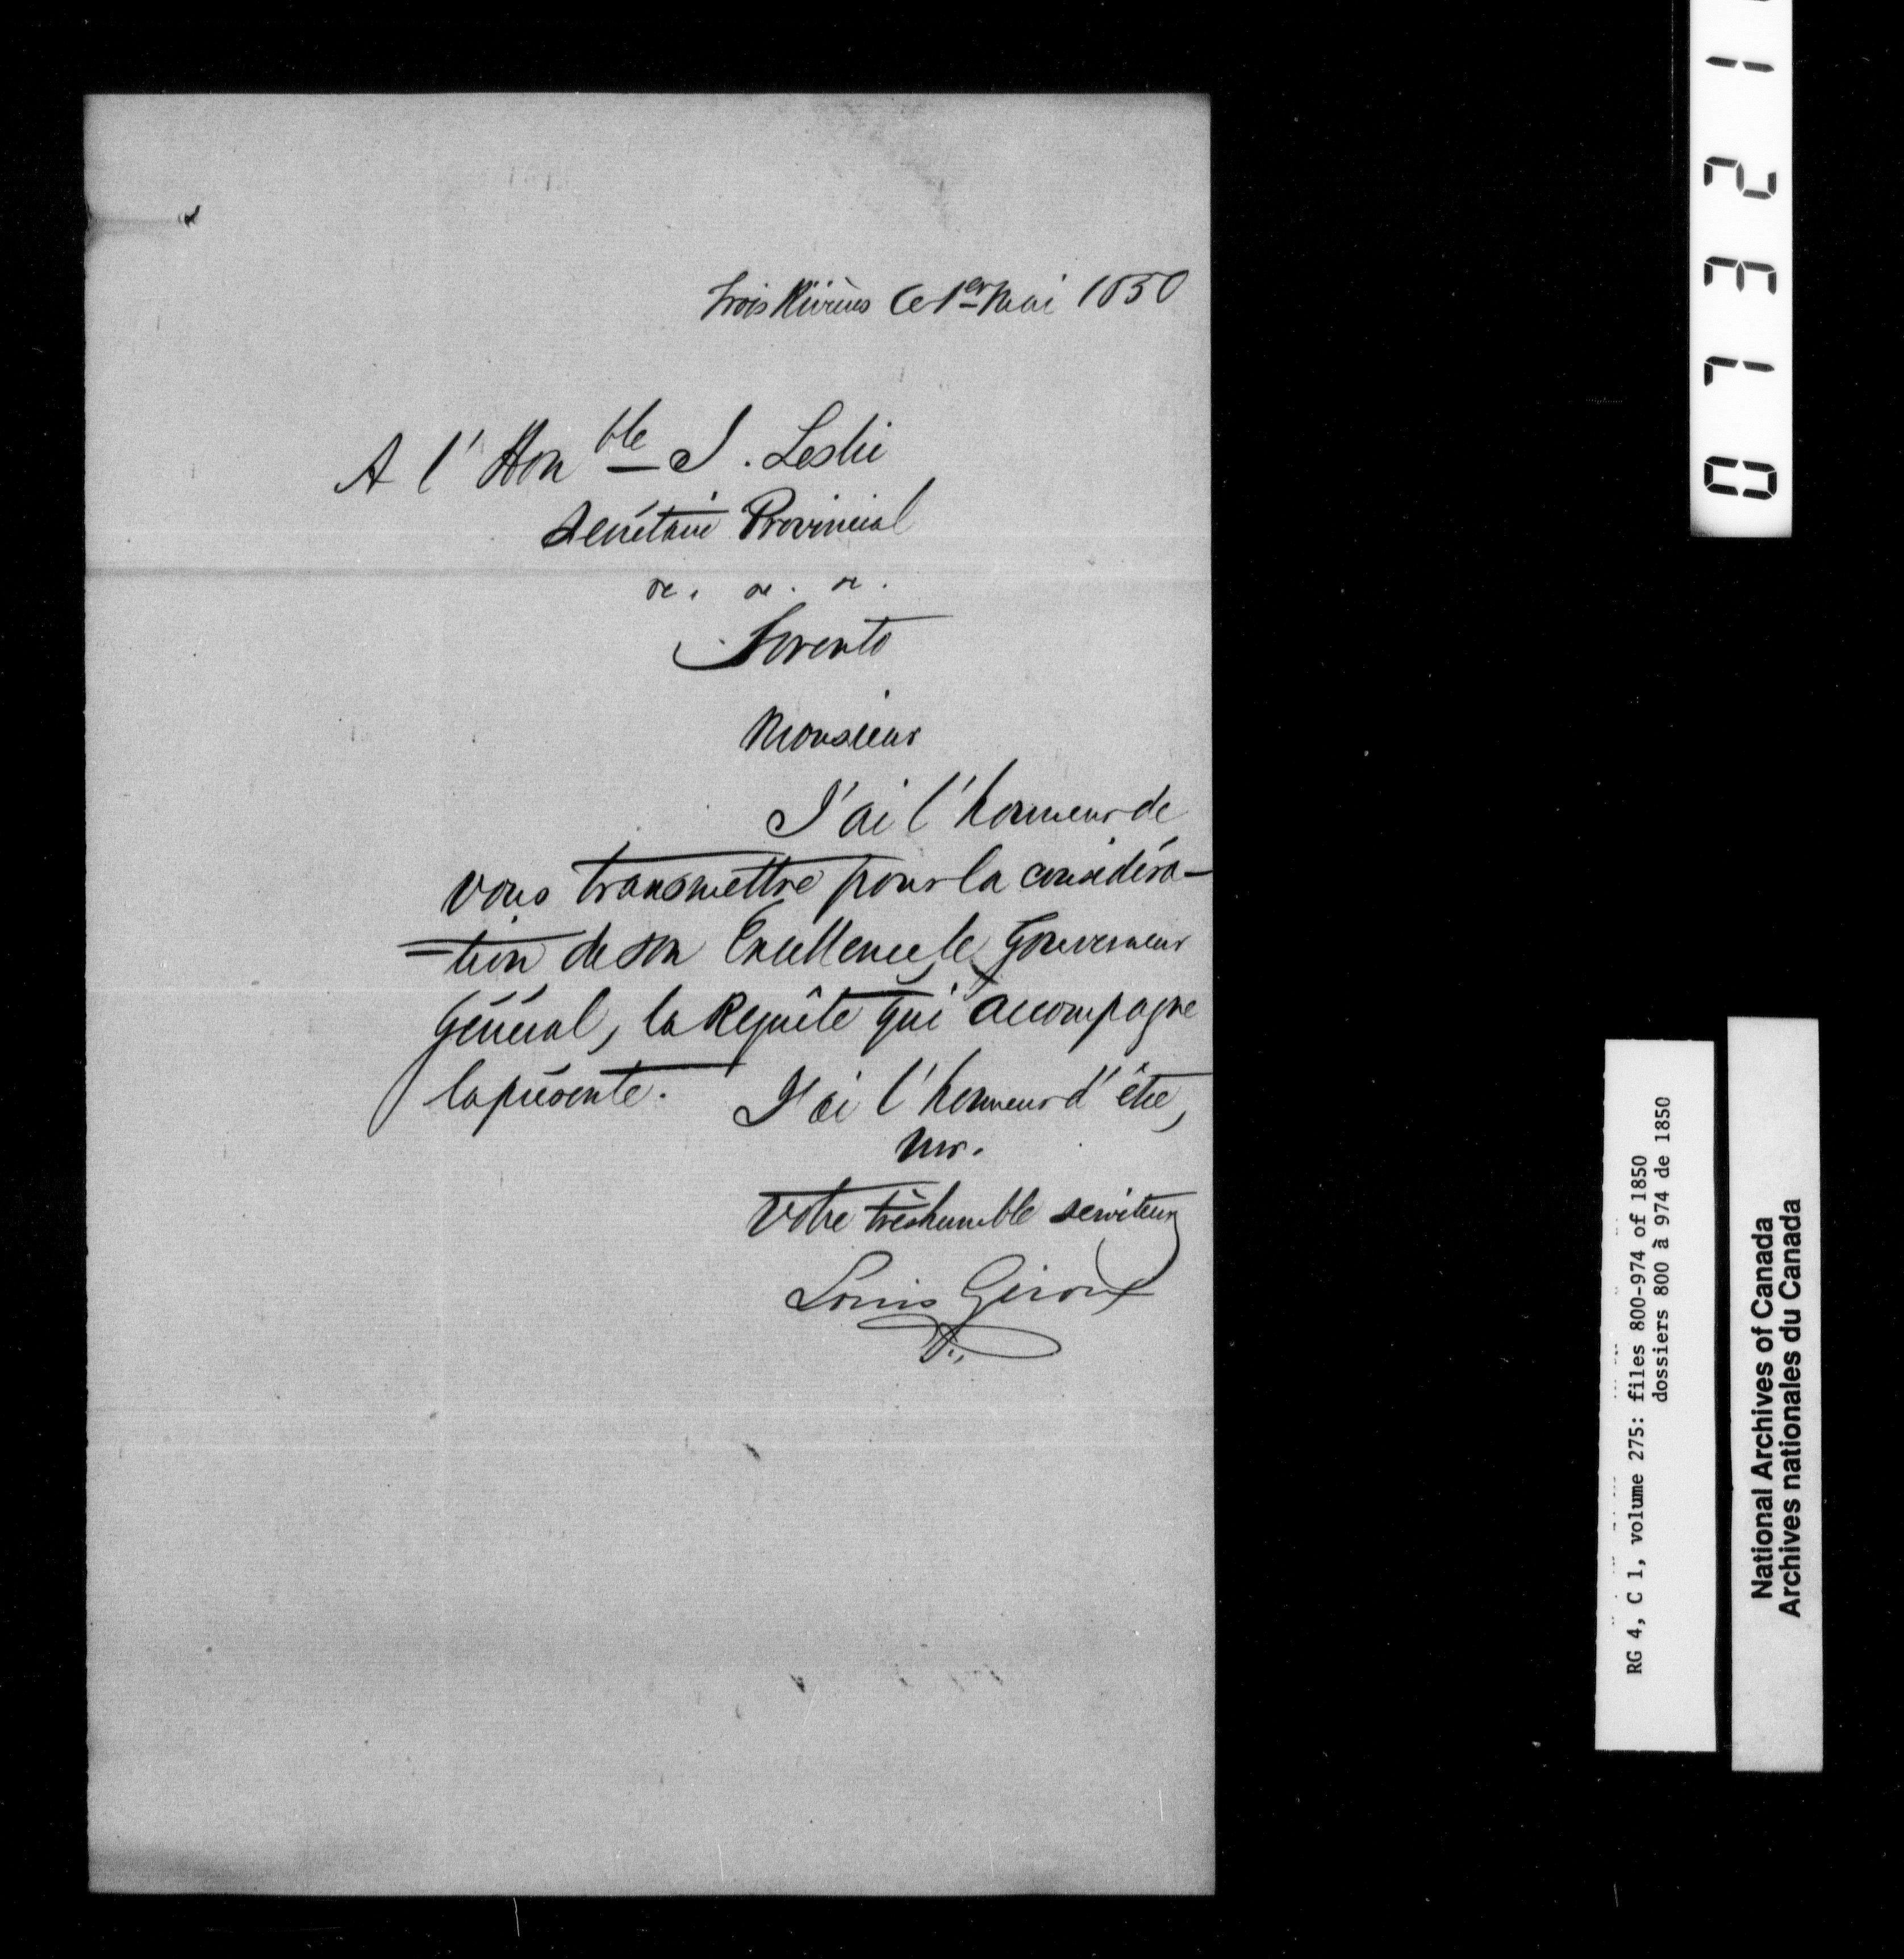 Trois Rivières Ce 1er Mai 1850
A l'Honble J. Leslie
Secrétaire Provincial
&c. &c. &c.
Toronto
Monsieur
J'ai l'honneur de
vous transmettre pour la considéra-
=tion de son Excellence le Gouverneur
Général, la Requête qui accompagne
la présente. J'ai l'honneur d'être,
Mr.
Votre très humble serviteur
Louis Giroux
0 7 3 2 1
RG 4, C 1, volume 275: files 800-974 of 1850
dossiers 800 à 974 de 1850
National Archives of Canada
Archives nationales du Canada